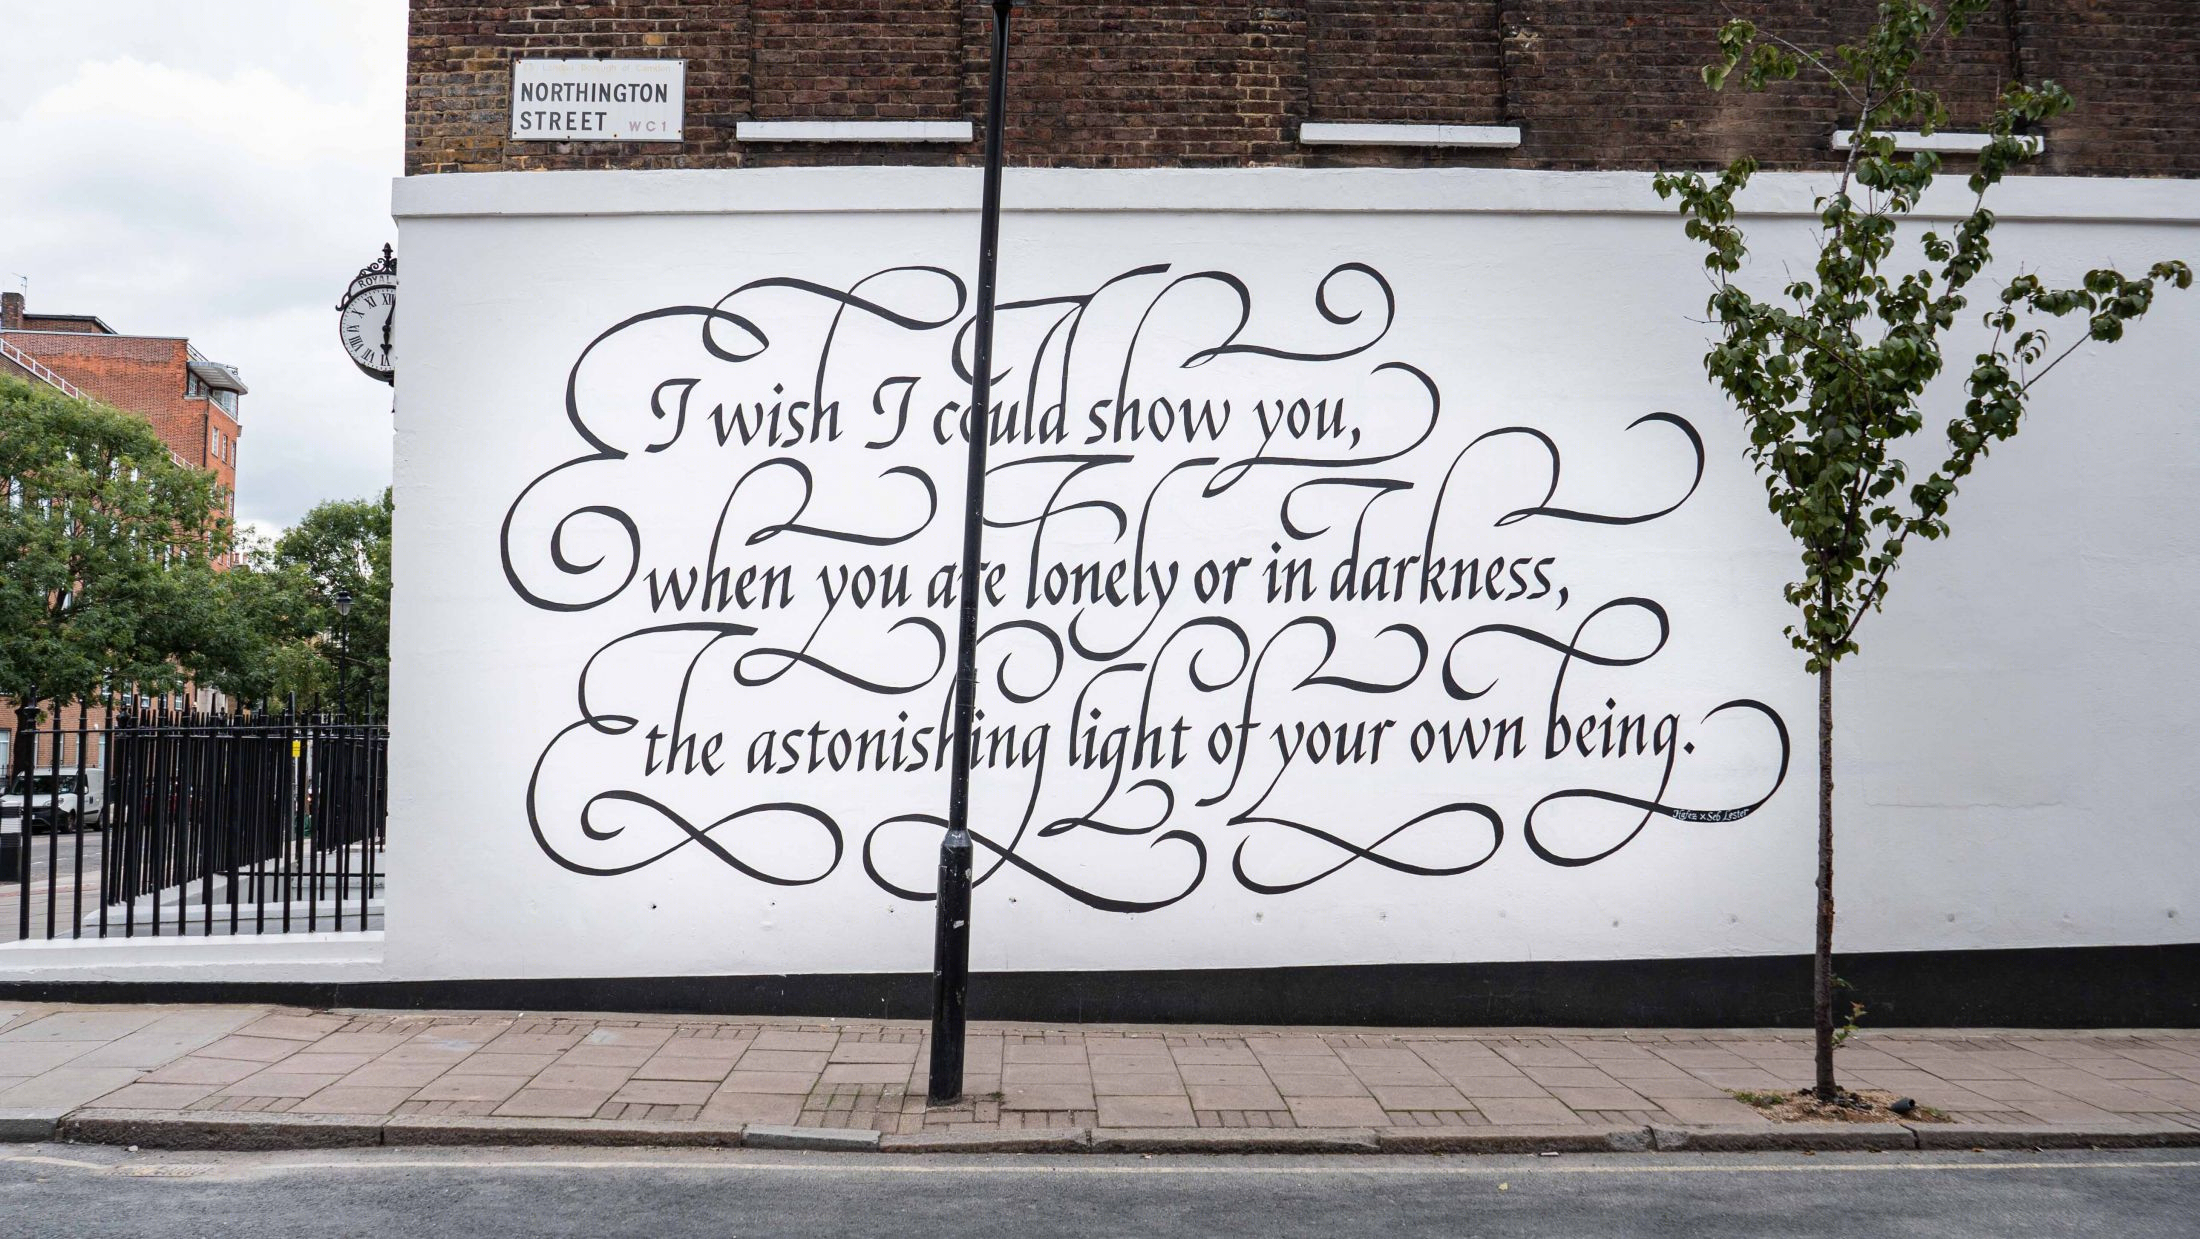 London Borough of Camden
NORTHINGTON
STREET WC1
ROYAL
XI XII
X
IX
VIII
VII
VI
I wish I could show you,
when you are lonely or in darkness,
the astonishing light of your own being.
Hafez x Seb Lester